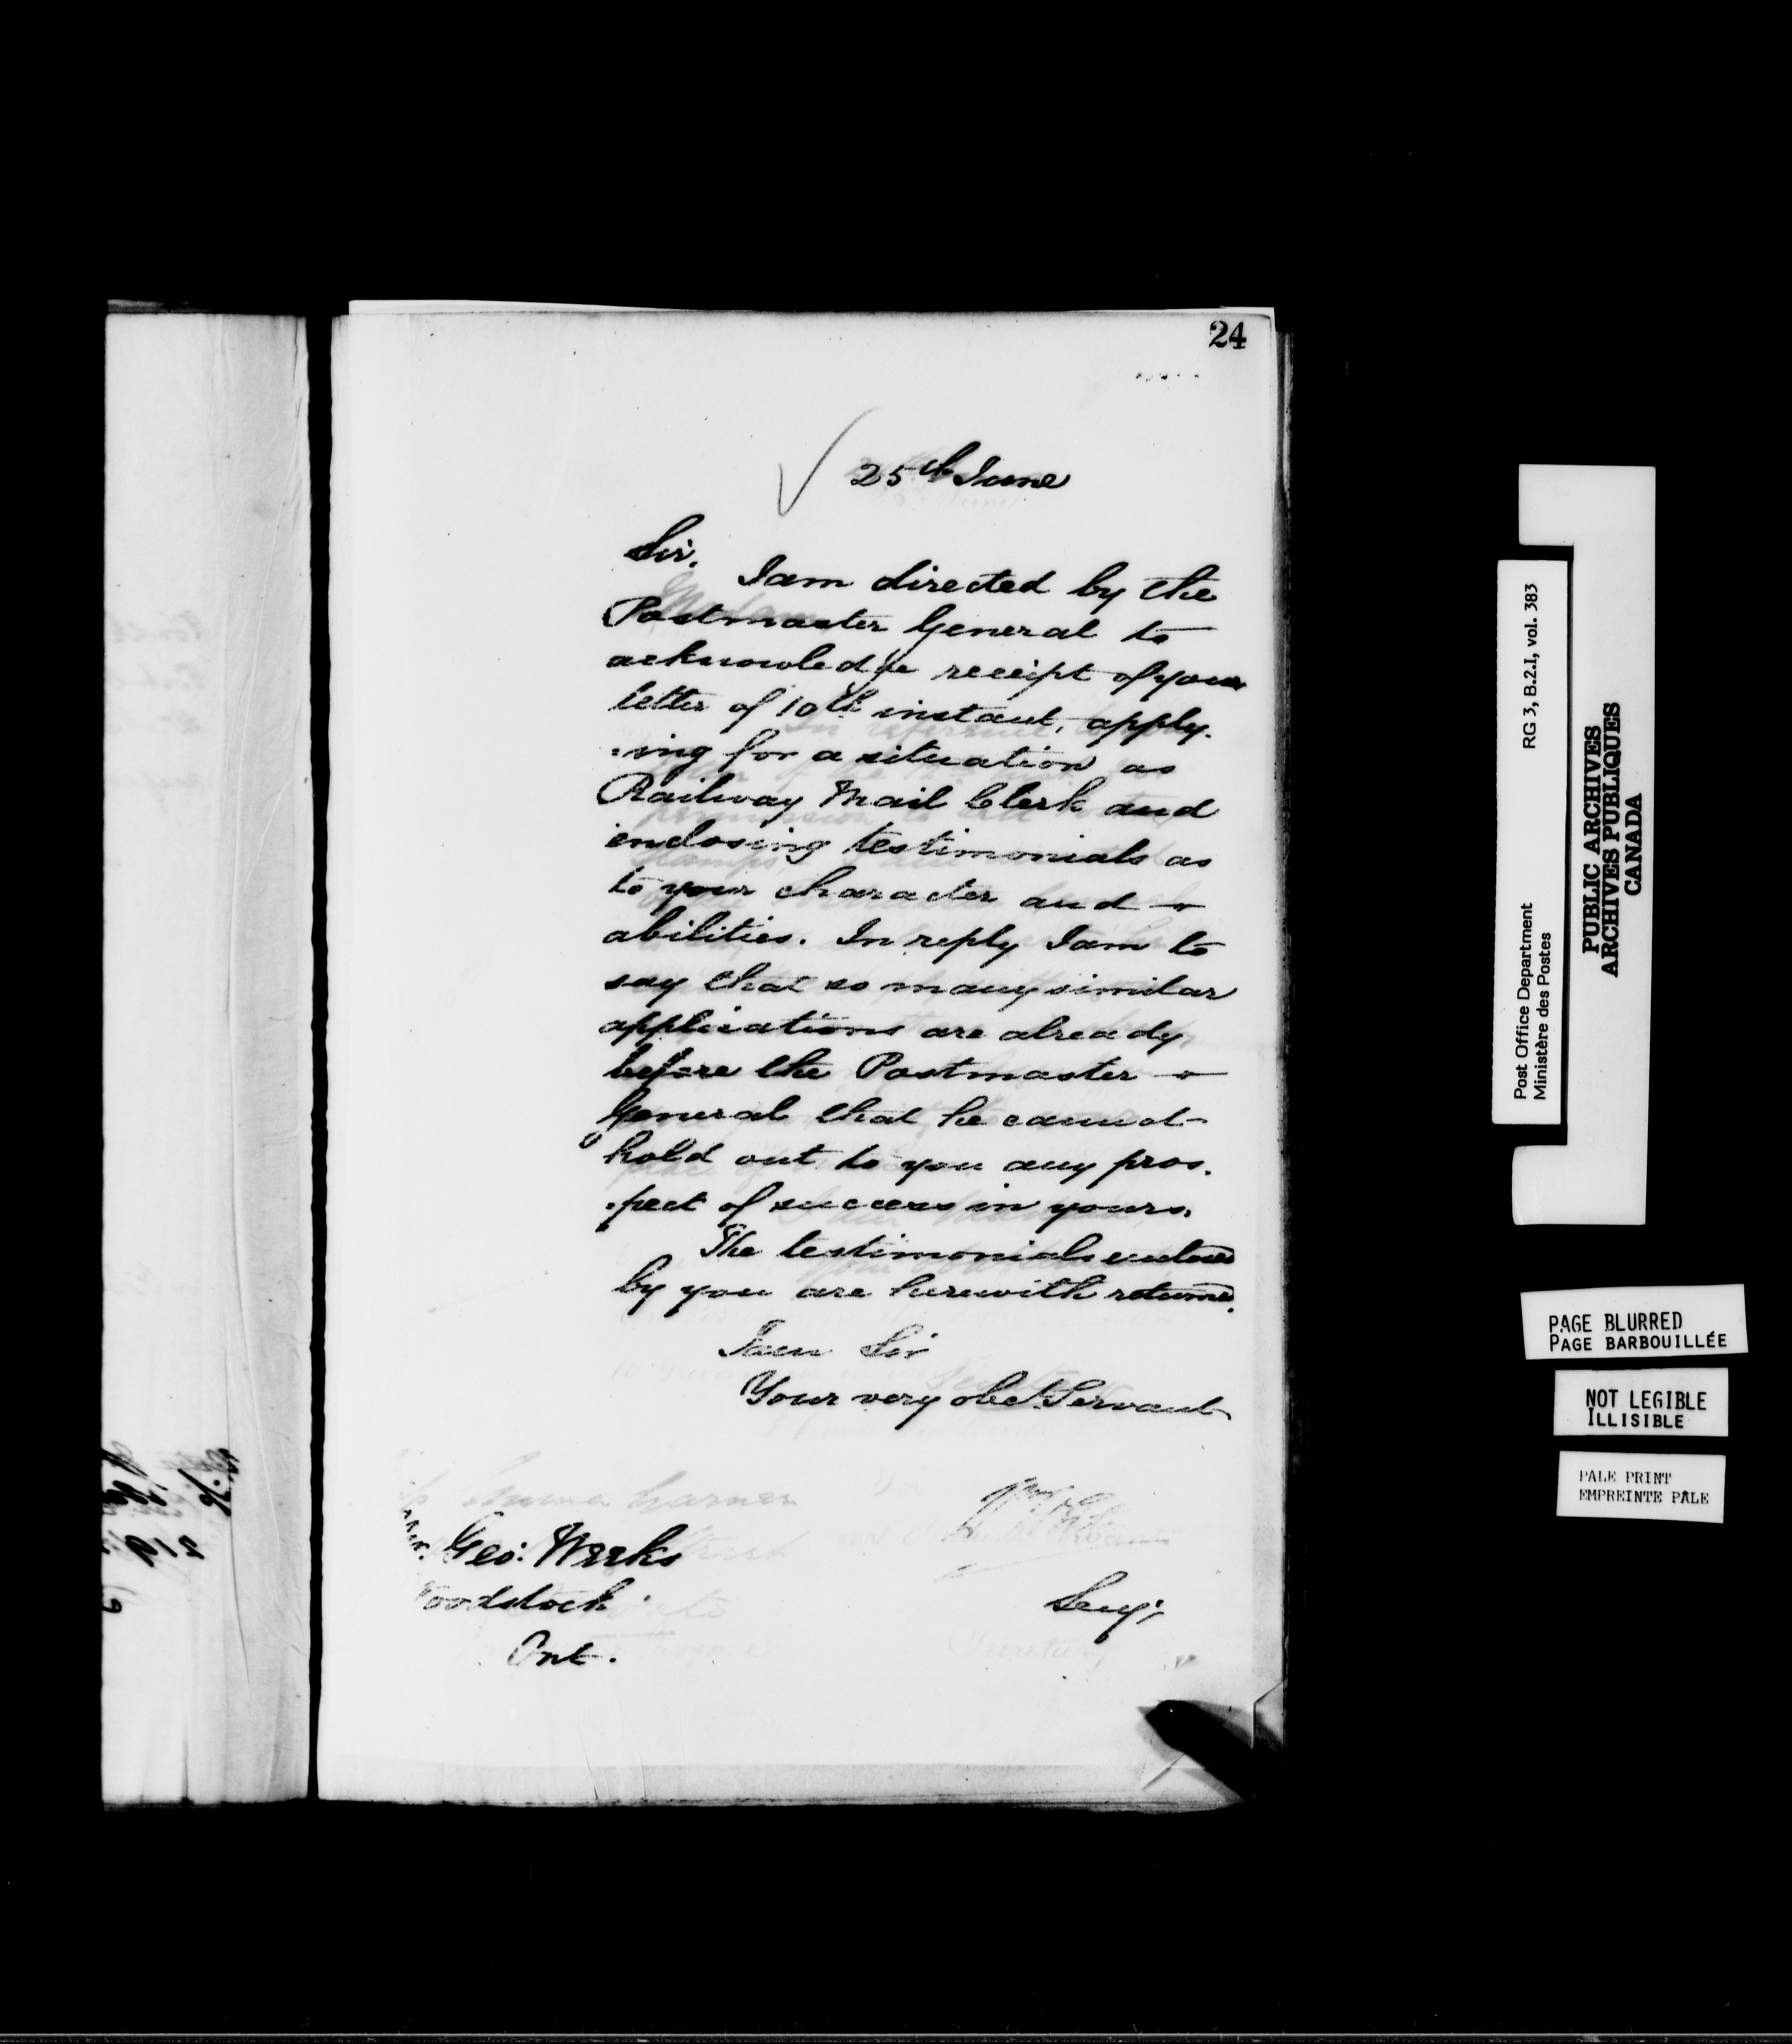 24
25th June
Sir.
I am directed by the
Postmaster General to
acknowledge receipt of your
letter of 10th instant, apply-
-ing for a situation as
Railway Mail Clerk and
enclosing testimonials as
to your character and
abilities. In reply I am to
say that so many similar
applications are already
before the Postmaster
General that he cannot
hold out to you any pros-
-pect of success in yours.
The testimonials enclosed
by you are herewith returned.
I am Sir
Your very obedt Servant
Geo: Weeks
Woodstock
Ont.
Secy.
Post Office Department
Ministère des Postes
RG 3, B.2.I, vol. 383
PUBLIC ARCHIVES
ARCHIVES PUBLIQUES
CANADA
PAGE BLURRED
PAGE BARBOUILLÉE
NOT LEGIBLE
ILLISIBLE
PALE PRINT
EMPREINTE PÂLE